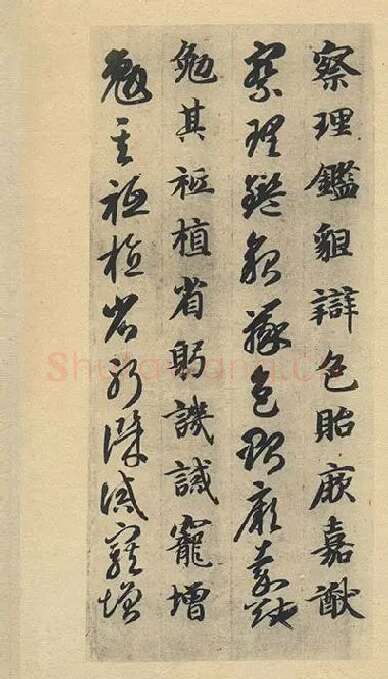 察理鑑貌辯色貽厥嘉猷
察理鑑貌辯色貽厥嘉猷
勉其祗植省躬譏誡寵增
勉其祗植省躬譏誡寵增